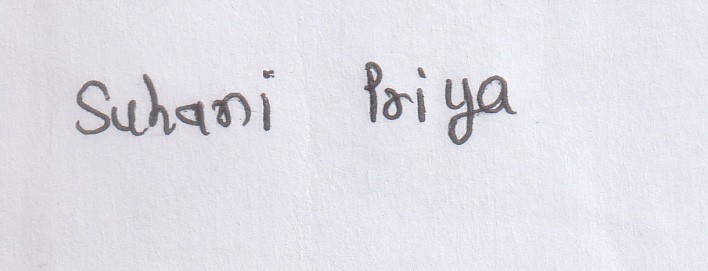 Suhani Priya